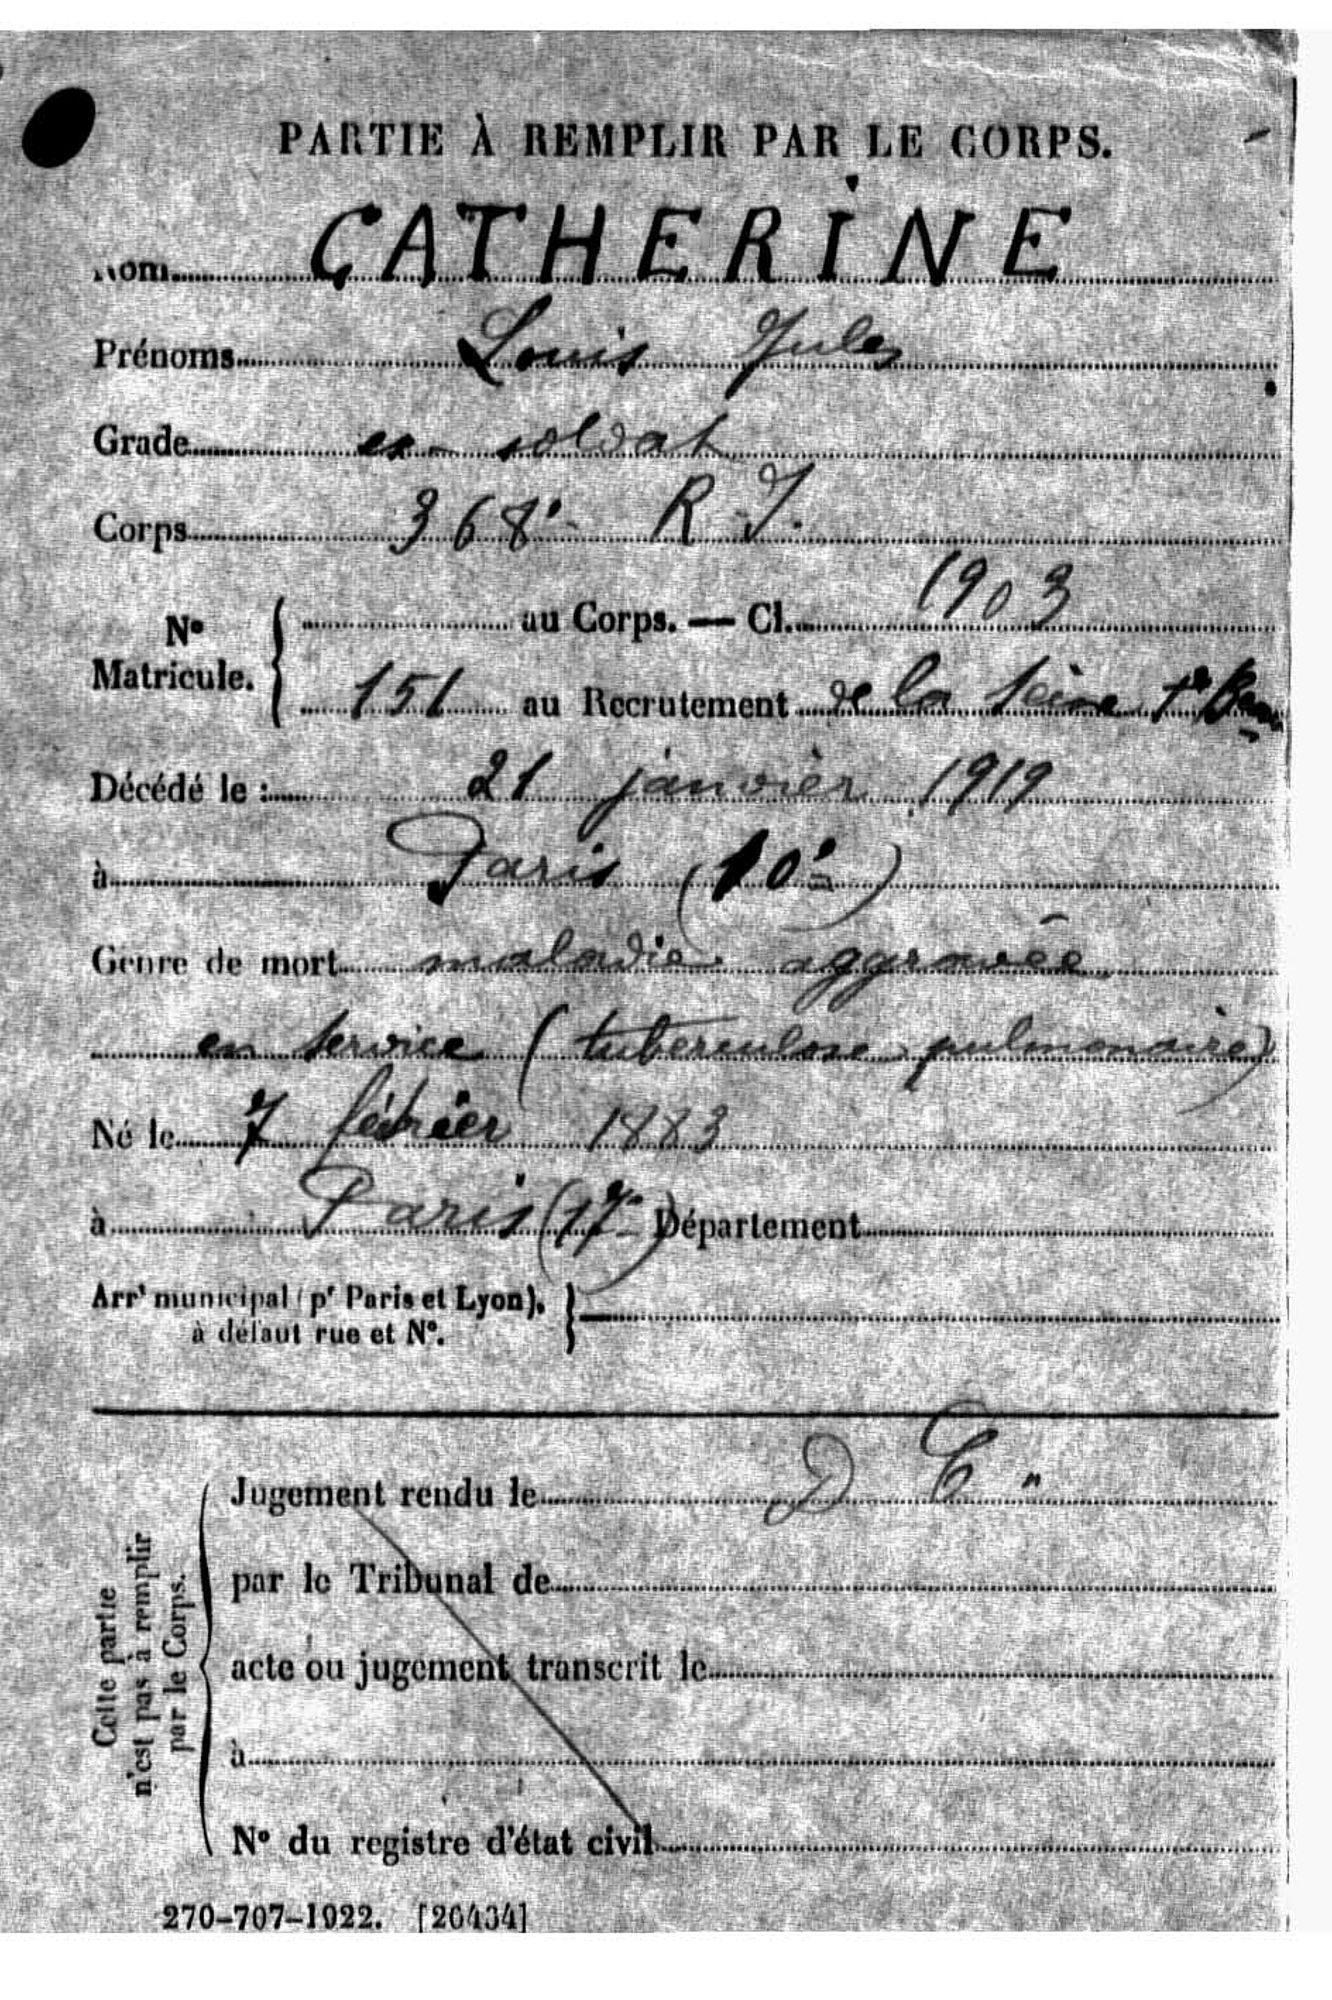 PARTIE À REMPLIR PAR LE CORPS.
Nom CATHERINE
Prénoms Louis Jules
Grade ex-soldat
Corps 368e R.I.
N° Matricule. { au Corps. — Cl. 1903
151 au Recrutement de la Seine 1er Bau
Décédé le : 21 janvier 1919
à Paris (10e)
Genre de mort maladie aggravée
en service (tuberculose pulmonaire)
Né le 7 février 1883
à Paris (17e) Département
Arrt municipal (pr Paris et Lyon), }
à défaut rue et N°.
Cette partie
n'est pas à remplir
par le Corps.
Jugement rendu le D C "
par le Tribunal de
acte ou jugement transcrit le
à
N° du registre d'état civil
270-707-1922. [26434]